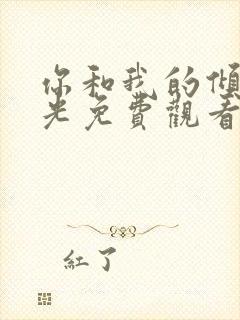 你和我的傾
光免費觀看
紅了